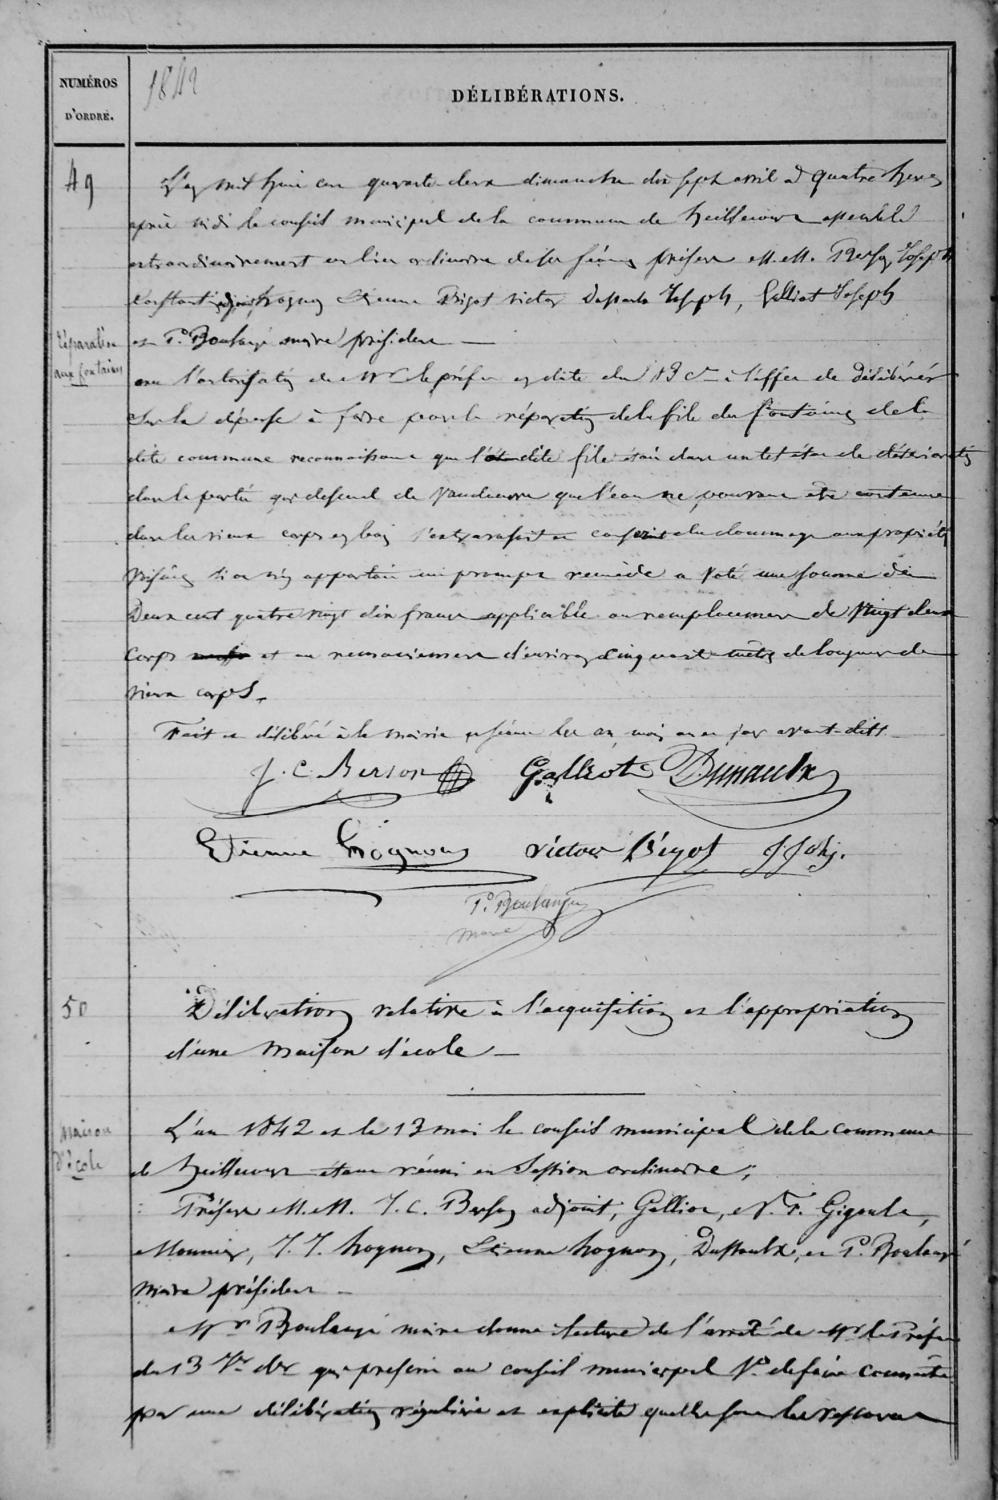 NUMÉROS
D'ORDRE.
1842
DÉLIBÉRATIONS.
49
L'an mil huit cent quarante deux dimanche dix sept avril à quatre heures
après midi le conseil municipal de la commune de heillecourt assemblé
extraordinairement au lieu ordinaire de ses séances présens M.M. Berson Joseph
Constant adjoint hognon Etienne Bigot victor Dussaulx Joseph, Galliot Joseph
et P. Boulangé maire président
Réparation
aux fontaines
vu l'autorisation de Mr le préfet en date du 13 Ct à l'effet de délibérer
sur la dépense à faire pour la réparation de la file des fontaines de la
dite commune reconnaissant que la dite file était dans un tel état de détérioration
dans la partie qui descend de Vandoeuvre que l'eau ne pouvant être contenue
dans les vieux corps en bois
voisines si on n'y apportait un prompt remède a voté une somme de
Deux cent quatre vingt dix francs applicable au remplacement de Vingt deux
corps et au d'environ cinquante mètres de longueur de
vieux corps.
Fait et délibéré à la mairie en séance les an, mois et jour avant dits
J. C. Berson Galliot Dussaulx
Etienne Hognon victor Bigot J. Joly.
P. Boulangé
maire
50
Délibération relative à l'acquisition et l'appropriation
d'une maison d'école
Maison
d'école
L'an 1842 et le 13 mai le conseil municipal de la commune
de heillecourt étant réuni en Session ordinaire;
Présens M.M. J. C. Berson adjoint, Galliot, N. F. Gigoult,
Mounier, J. J. hognon, Etienne hognon, Dussaulx, et P. Boulangé
maire président
Mr Boulangé maire donne lecture de l'arrêté de Mr le Préfet
du 13 qui prescrit au conseil municipal de faire connaître
par une délibération régulière et explicite quelles sont les ressources